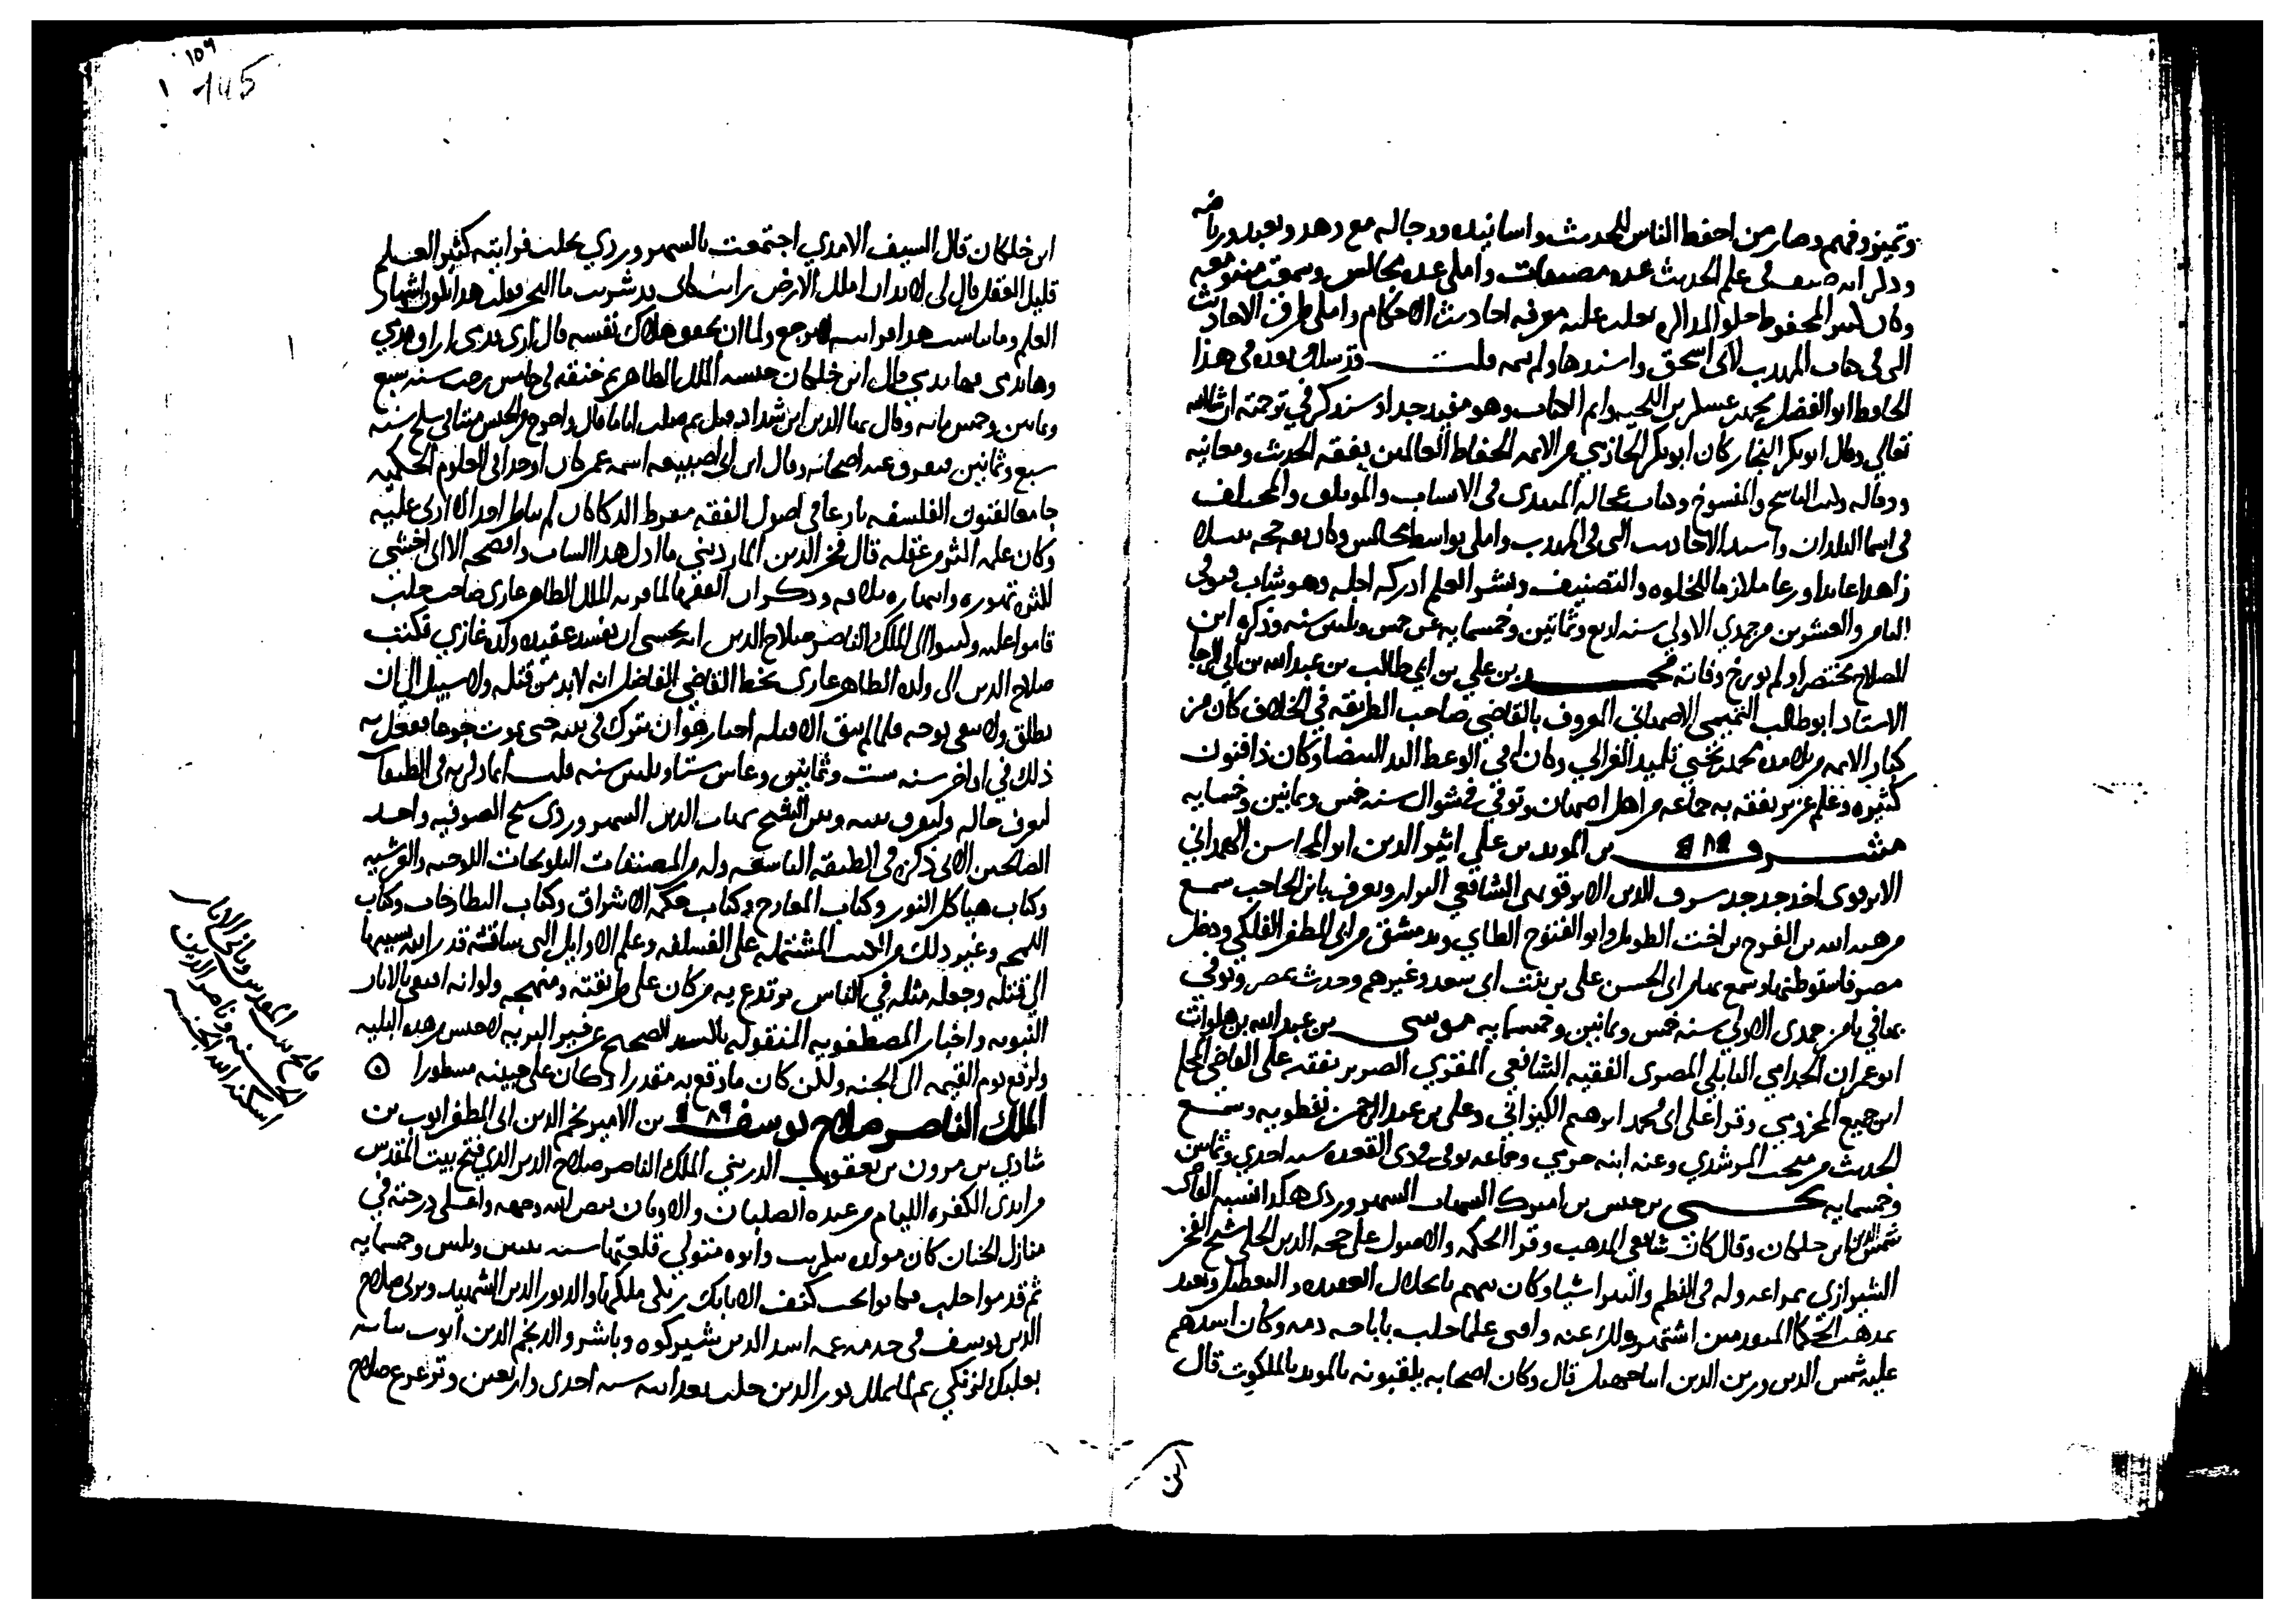 وتميز وفهم وصار من احفظ الناس للحديث واسانيده ورجاله مع زهد وتعبد ورياضه
وذكر انه صنف في علم الحديث عده مصنفات واملى عده مجالس وسمعت منه ومعه
وكان كثير المحفوظ حلو المذاكره يغلب عليه معرفه احاديث الاحكام واملى طرق الاحاديث
التي في كتاب المهذب لابي اسحق واسندها ولم يتمه قلت وقد سلك بعده في هذا
الحافظ ابو الفضل محمد بن عسكر بن اللحيه واتم الكتاب وهو مفيد جدا وسنذكر في ترجمته ان شا الله
تعالى وقال ابن النجار كان ابو بكر الحازمي من الايمه الحفاظ العالمين بفقه الحديث ومعانيه
ورجاله وله الناسخ والمنسوخ وكتاب عجاله المبتدي في الانساب والموتلف والمختلف
في اسما البلدان واسند الاحاديث التي في المهذب واملى بواسط مجالس وكان ثقه حجه نبيلا
زاهدا عابدا ورعا ملازما للخلوه والتصنيف ونشر العلم ادركه اجله وهو شاب توفي
الثامن والعشرين من جمدي الاولى سنه اربع وثمانين وخمسمايه عن خمس وثلثين سنه وذكره ابن
الصلاح مختصرا ولم يورخ وفاته محمد بن علي بن ابي طالب بن عبد الله بن ابي الرجا
الاستاد ابو طالب التميمي الاصبهاني المعروف بالقاضي صاحب الطريقه في الخلاف كان من
كبار الايمه من تلامذه محمد بن يحيى تلميذ الغزالي وكان له في الوعظ اليد البيضا وكان ذا فنون
كثيره وعلم غزير تفقه به جماعه من اهل اصبهان وتوفي في شوال سنه خمس وثمانين وخمسمايه
مشرف بن المويد بن علي اثير الدين ابو المحاسن الهمداني
الابرقوهي اخو جد جد شرف الدين الابرقوهي الشافعي البزار ويعرف بابن الحاجب سمع
من هبه الله بن الفرج بن اخت الطويل وابو الفتوح الطاي وبدمشق من ابي المظفر الفلكي ودخل
مصر فاستوطنها وسمع بها من ابي الحسن علي بن بنت ابي سعد وغيرهم وحدث بمصر وتوفي
بها في ثامن جمدى الاولى سنه خمس وثمانين وخمسمايه موسى بن عبد الله بن هلوات
ابو عمران الجذامي النابلي المصري الفقيه الشافعي المقري الضرير تفقه على القاضي المجلي
ابن جميع المخزومي وقرا على ابي محمد ابرهيم الكيزاني وعلي بن عبد الرحمن نفطويه وسمع
الحديث من منجب المرشدي وعنه ابنه حرمي وجماعه توفي في ذي القعده سنه احدي وثمانين
وخمسمايه يحيى بن حبش بن اميرك الشهاب السهروردي هكذا نسبه القاضي
شمس الدين ابن خلكان وقال كان شافعي المذهب وقرا الحكمه والاصول على مجد الدين الجيلي شيخ الفخر
الشيرازي بمراغه وله في النظم والنثر اشيا وكان يتهم بانحلال العقيده والتعطيل ويعتقد
مذهب الحكما المتقدمين اشتهر ذلك عنه وافتى علما حلب باباحه دمه وكان اشدهم
عليه شمس الدين وزين الدين ابنا جهبل قال وكان اصحابه يلقبونه بالمويد بالملكوت قال
ابن
١٥٩
145
ابن خلكان قال السيف الامدي اجتمعت بالسهروردي بحلب فرايته كثير العلم
قليل العقل قال لي لا بد ان املك الارض رايت كاني قد شربت ما البحر فقلت هذا يكون اشتهار
العلم وما يناسب هذا فرايته لا يرجع ولما ان تحقق هلاك نفسه قال ارى قدمي اراق دمي
وهان دمي فها ندمي قال ابن خلكان حبسه الملك الظاهر ثم خنقه في خامس رجب سنه سبع
وثمانين وخمس مايه وقال بها الدين ابن شداد قتل ثم صلب اياما قال واخرج من الحبس ميتا في سلخ سنه
سبع وثمانين فتفرق عنه اصحابه وقال ابن ابي اصيبعه اسمه عمر كان اوحدا في العلوم الحكميه
جامعا لفنون الفلسفه بارعا في اصول الفقه مفرط الذكا كان لم يناظر احدا الا اربى عليه
وكان علمه اكثر من عقله قال فخر الدين المارديني ما اذكى هذا الشاب وافصحه الا اني اخشى
لكثره تهوره واستهتاره تلافه وذكر ان الفقها لما قربه الملك الظاهر غازي صاحب حلب
قاموا عليه وكتبوا الى الملك الناصر صلاح الدين انه يخشى ان يفسد عقيده ولده غازي فكتب
صلاح الدين الى ولده الظاهر غازي بخط القاضي الفاضل انه لا بد من قتله ولا سبيل الى ان
يطلق ولا يبقى بوجه فلما لم يبق الا قتله اختار هو ان يترك في بيت حتى يموت جوعا ففعل به
ذلك في اواخر سنه ست وثمانين وعاش ستا وثلثين سنه قلت انما ذكرته في الطبقات
ليعرف حاله وليفرق بينه وبين الشيخ شهاب الدين السهروردي شيخ الصوفيه واحد
الصالحين الاتي ذكره في الطبقه التاسعه وله من المصنفات التلويحات اللوحيه والعرشيه
وكتاب هياكل النور وكتاب المعارج وكتاب حكمه الاشراق وكتاب المطارحات وكتاب
اللمحه وغير ذلك من الكتب المشتمله على الفلسفه وعلم الاوايل التي ساقته قدرا بسببها
الى قتله وجعله مثله في الناس يرتدع به من كان على طريقته ومنهجه ولو انه اشتغل بالاثار
النبويه واخبار المصطفويه المنقوله بالسند الصحيح عن خير البريه لاحتبس من هذه البليه
ولرفع يوم القيمه الى الجنه ولكن كان ما وقع به مقدرا وكان على جبينه مسطورا
الملك الناصر صلاح يوسف ٥٨٩ بن الامير نجم الدين ابي المظفر ايوب بن
شادي بن مرون بن يعقوب الدويني الملك الناصر صلاح الدين الذي فتح بيت المقدس
من ايدي الكفره الليام من عبده الصلبان والاوثان بيض الله وجهه واعلى درجته في
منازل الجنان كان مولده بتكريت وابوه متولي قلعتها سنه ثنتين وثلثين وخمسمايه
ثم قدموا حلب فكانوا تحت كنف الاتابك زنكي ملكها والد نور الدين الشهيد وتربى صلاح
الدين يوسف في خدمه عمه اسد الدين شيركوه وباشر والده نجم الدين ايوب نيابه
بعلبك لزنكي ثم لما ملك نور الدين حلب بعد ابيه سنه احدى واربعين وترعرع صلاح
فاتح بيت المقدس وماحي الاثار
الخبيثه وناصر الدين
اسكنه الله الجنه